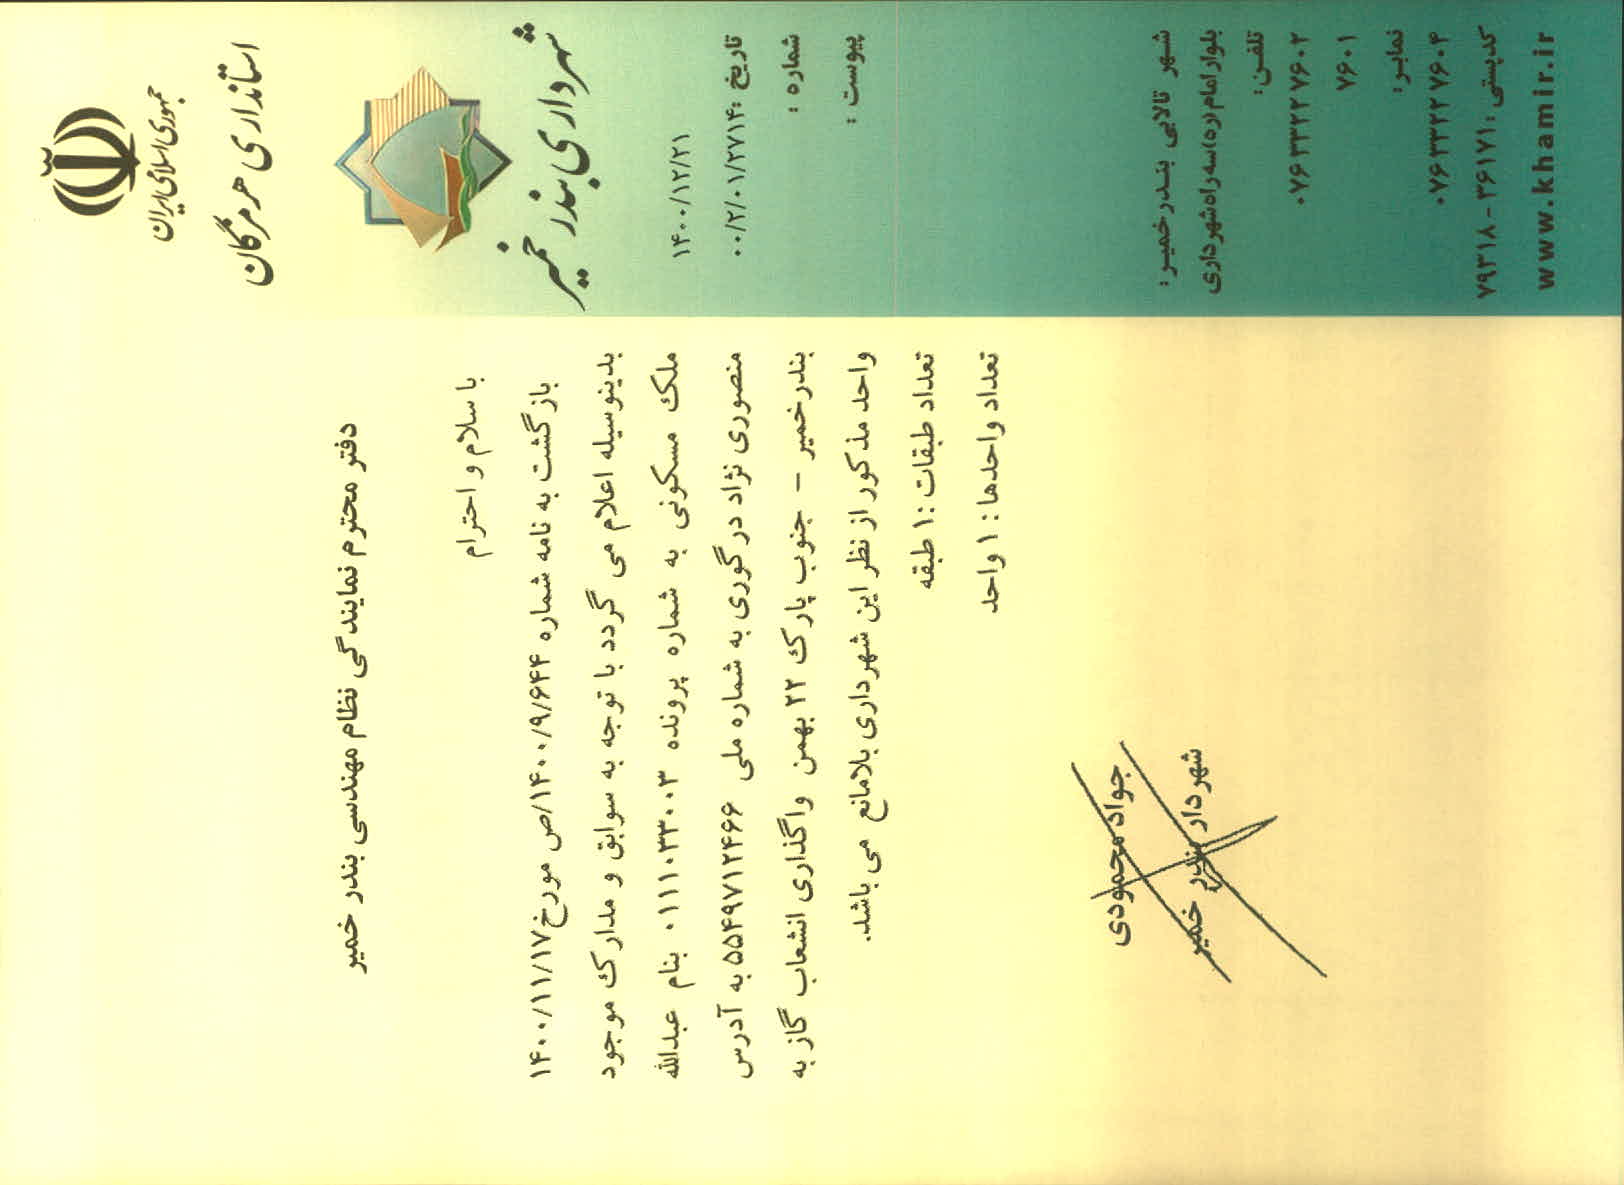 جمهوری اسلامی ایران
استانداری هرمزگان
شهرداری بندر خمیر
۱۴۰۰/۱۲/۲۱
تاریخ :۰۰/۲/۰۱/۲۷۱۴
شماره :
پیوست :
دفتر محترم نمایندگی نظام مهندسی بندر خمیر
با سلام و احترام
بازگشت به نامه شماره ۱۴۰۰/۹/۶۴۴/ص مورخ۱۴۰۰/۱۱/۱۷
بدینوسیله اعلام می گردد با توجه به سوابق و مدارک موجود
ملک مسکونی به شماره پرونده ۰۱۱۱۰۳۳۰۰۳ بنام عبدالله
منصوری نژاد درگوری به شماره ملی ۵۵۴۹۷۱۲۴۶۶ به آدرس
بندرخمیر – جنوب پارک ۲۲ بهمن واگذاری انشعاب گاز به
واحد مذکور از نظر این شهرداری بلامانع می باشد.
تعداد طبقات :۱ طبقه
تعداد واحدها : ۱ واحد
جواد محمودی
شهردار بندر خمیر
شهر تالابی بندرخمیر:
بلوار امام(ره)سه راه شهرداری
تلفن:
۰۷۶۳۳۲۲۷۶۰۲
۷۶۰۱
نمابر:
۰۷۶۳۳۲۲۷۶۰۴
کدپستی :۳۶۱۷۱ - ۷۹۳۱۸
www.khamir.ir